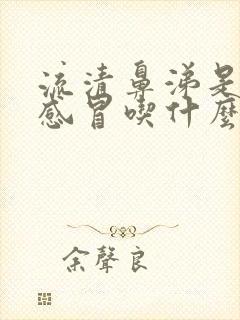 流清鼻涕是
感冒喫什麼
余聲良